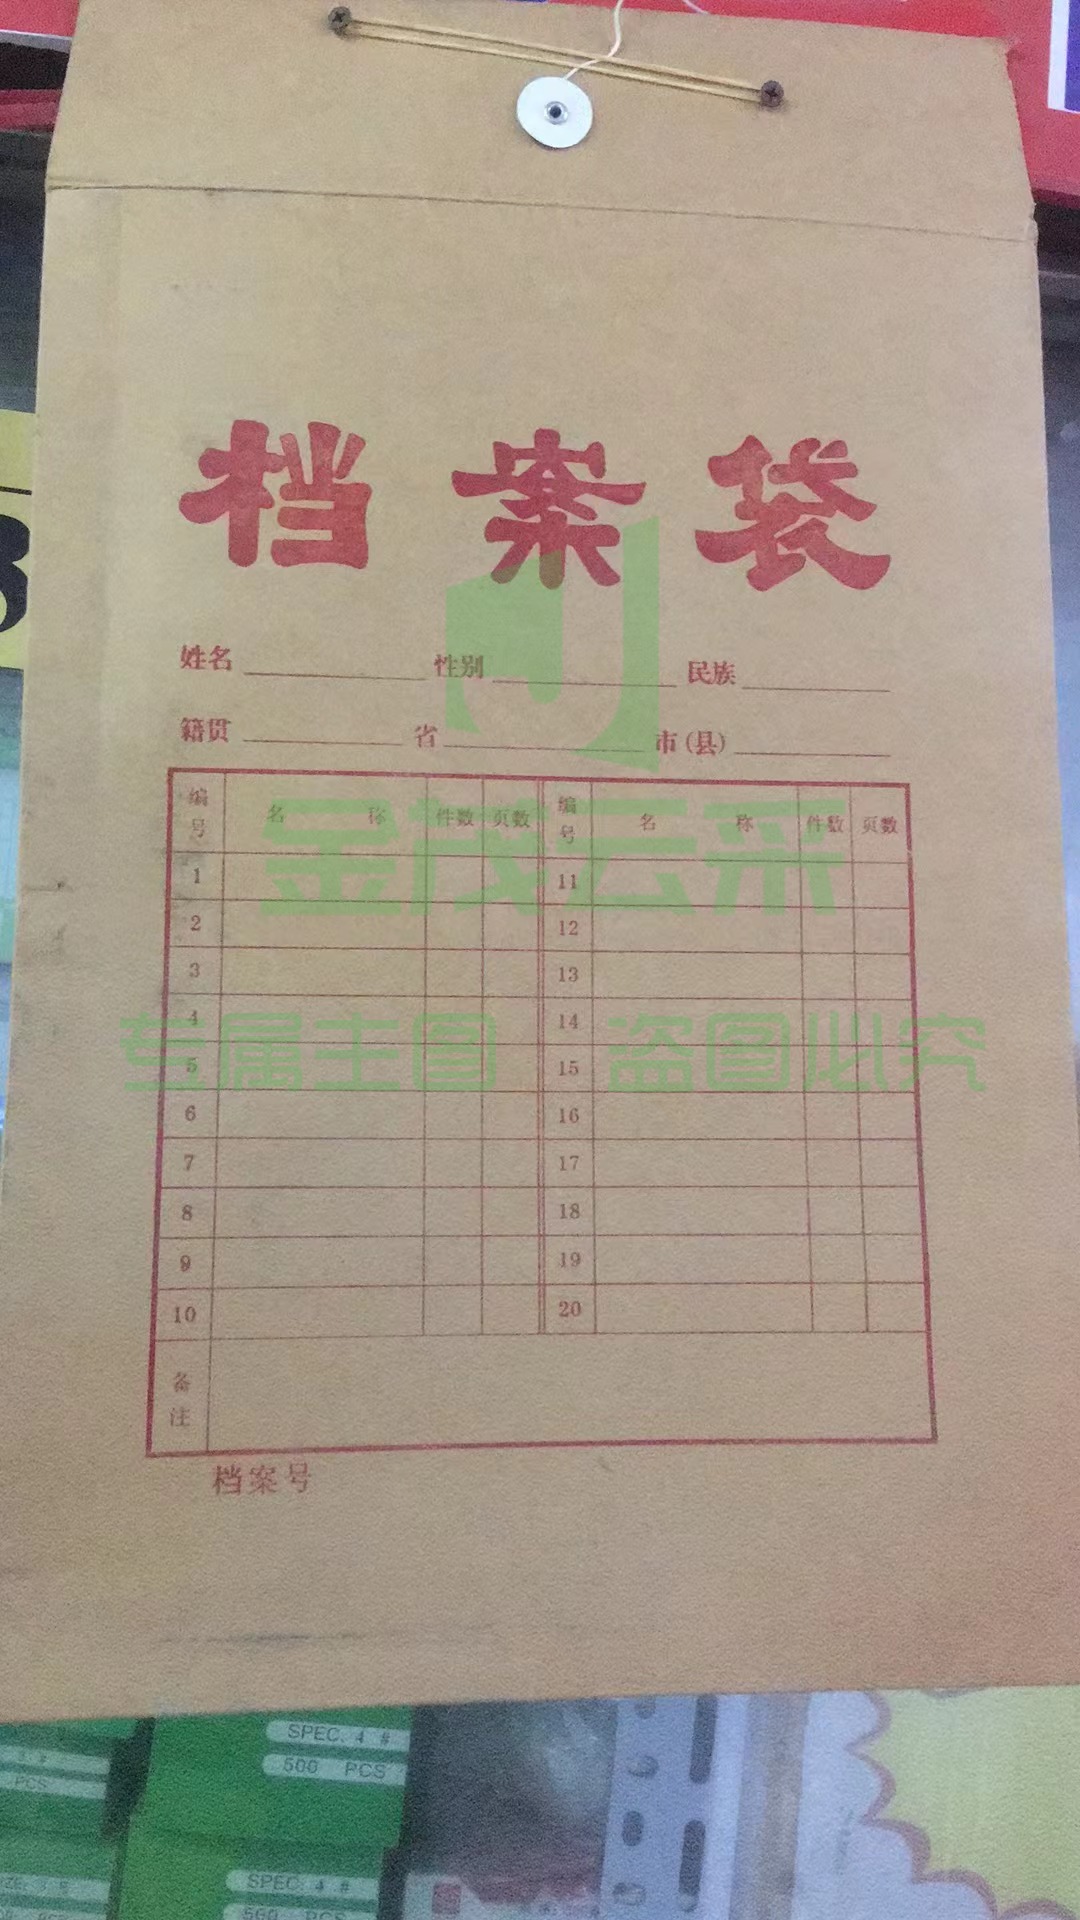 档案袋
姓名 性别 民族
籍贯 省 市(县)
编号 名称 件数 页数 编号 名称 件数 页数
1 11
2 12
3 13
4 14
5 15
6 16
7 17
8 18
9 19
10 20
备注
档案号
金茂云采
专属主图 盗图必究
SPEC. 4 #
500 PCS
PCS
SPEC. 4 #
500 PCS